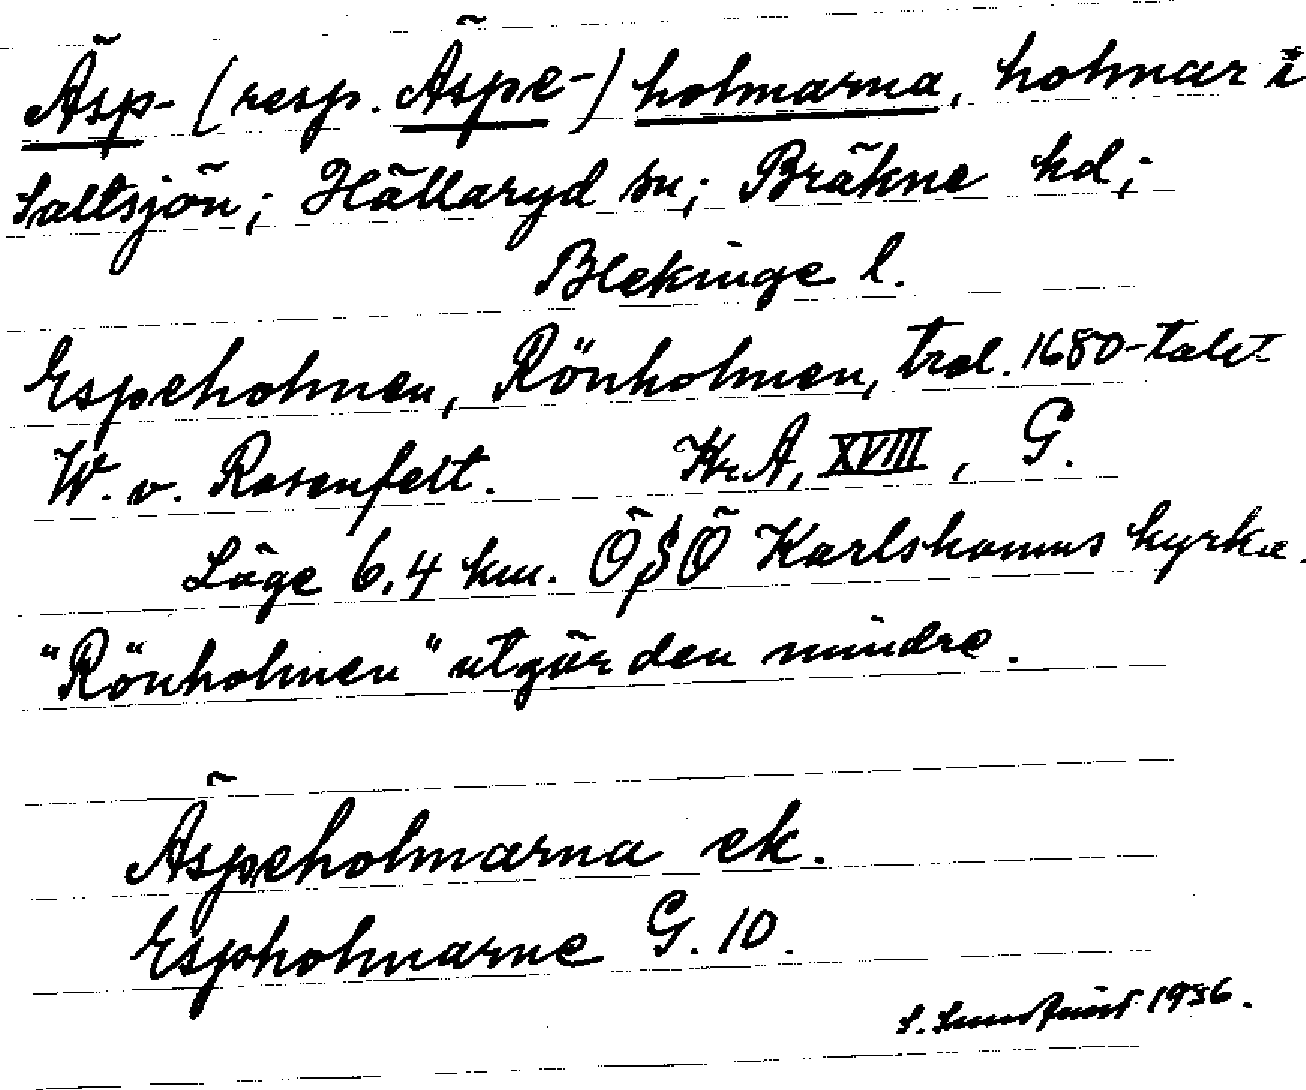 Äsp- (resp. Äspe-) holmarna, holmar i
Saltsjön; Hällaryd sn; Bräkne hd;
Blekinge l.
Espeholmen, Rönholmen, trol. 1680-talet
W. v. Rosenfelt. Kr.A, XVIII, G.
Läge 6,4 km. ÖSÖ Karlshamns kyrka.
"Rönholmen" utgör den mindre.
Äspeholmarna ek.
Espholmarne G. 10.
S. 1936.